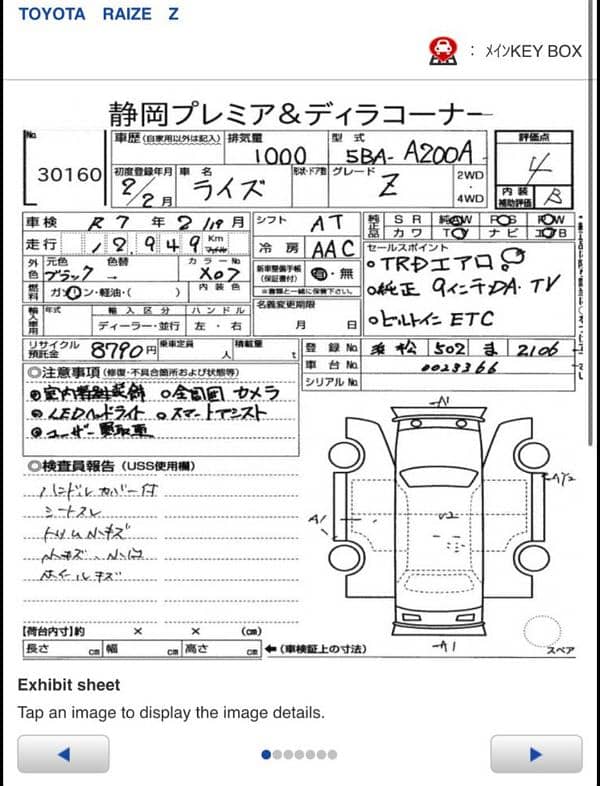 TOYOTA RAIZE Z
: ﾒｲﾝKEY BOX
静岡プレミア&ディラコーナー
No.
30160
車歴 (自家用以外は記入)
排気量
1000
型式
5BA- A200A
評価点
4
初度登録年月
2/2月
車名
ライズ
形状・ドア数
グレード
Z
2WD
・
4WD
内装
補助評価
B
車検 R 7 年 2/19月
シフト AT
純正品
SR 純AW PS PW
カワ TV ナビ エアB
走行 18,949 Km マイル
冷房 AAC
セールスポイント
外色
元色
ブラック
色替
→
カラーNo
X07
新車整備手帳
(保証書付)
有・無
※書類と一緒に保管下さい。
・TRDエアロ!
・純正9インチDA・TV
・ビルトインETC
燃料
ガソリン・軽油・( )
内装色
名義変更期限
月 日
輸入車用
年式
輸入区分
ディーラー・並行
ハンドル
左・右
リサイクル
預託金
8790円
乗車定員
人
積載量
t
登録No 浜松 502 ま 2106
車台No 0023366
シリアルNo
◎注意事項(修復・不具合箇所および状態等)
全周囲カメラ
LEDヘッドライト ○スマートアシスト
ユーザー買取車
◎検査員報告 (USS使用欄)
ハンドルカバー付
シートスレ
トリム小キズ
小キズ、小凹
ホイールキズ
A1
A1
A1
スペア
【荷台内寸】約 × × (cm)
長さ cm 幅 cm 高さ cm ←(車検証上の寸法)
Exhibit sheet
Tap an image to display the image details.